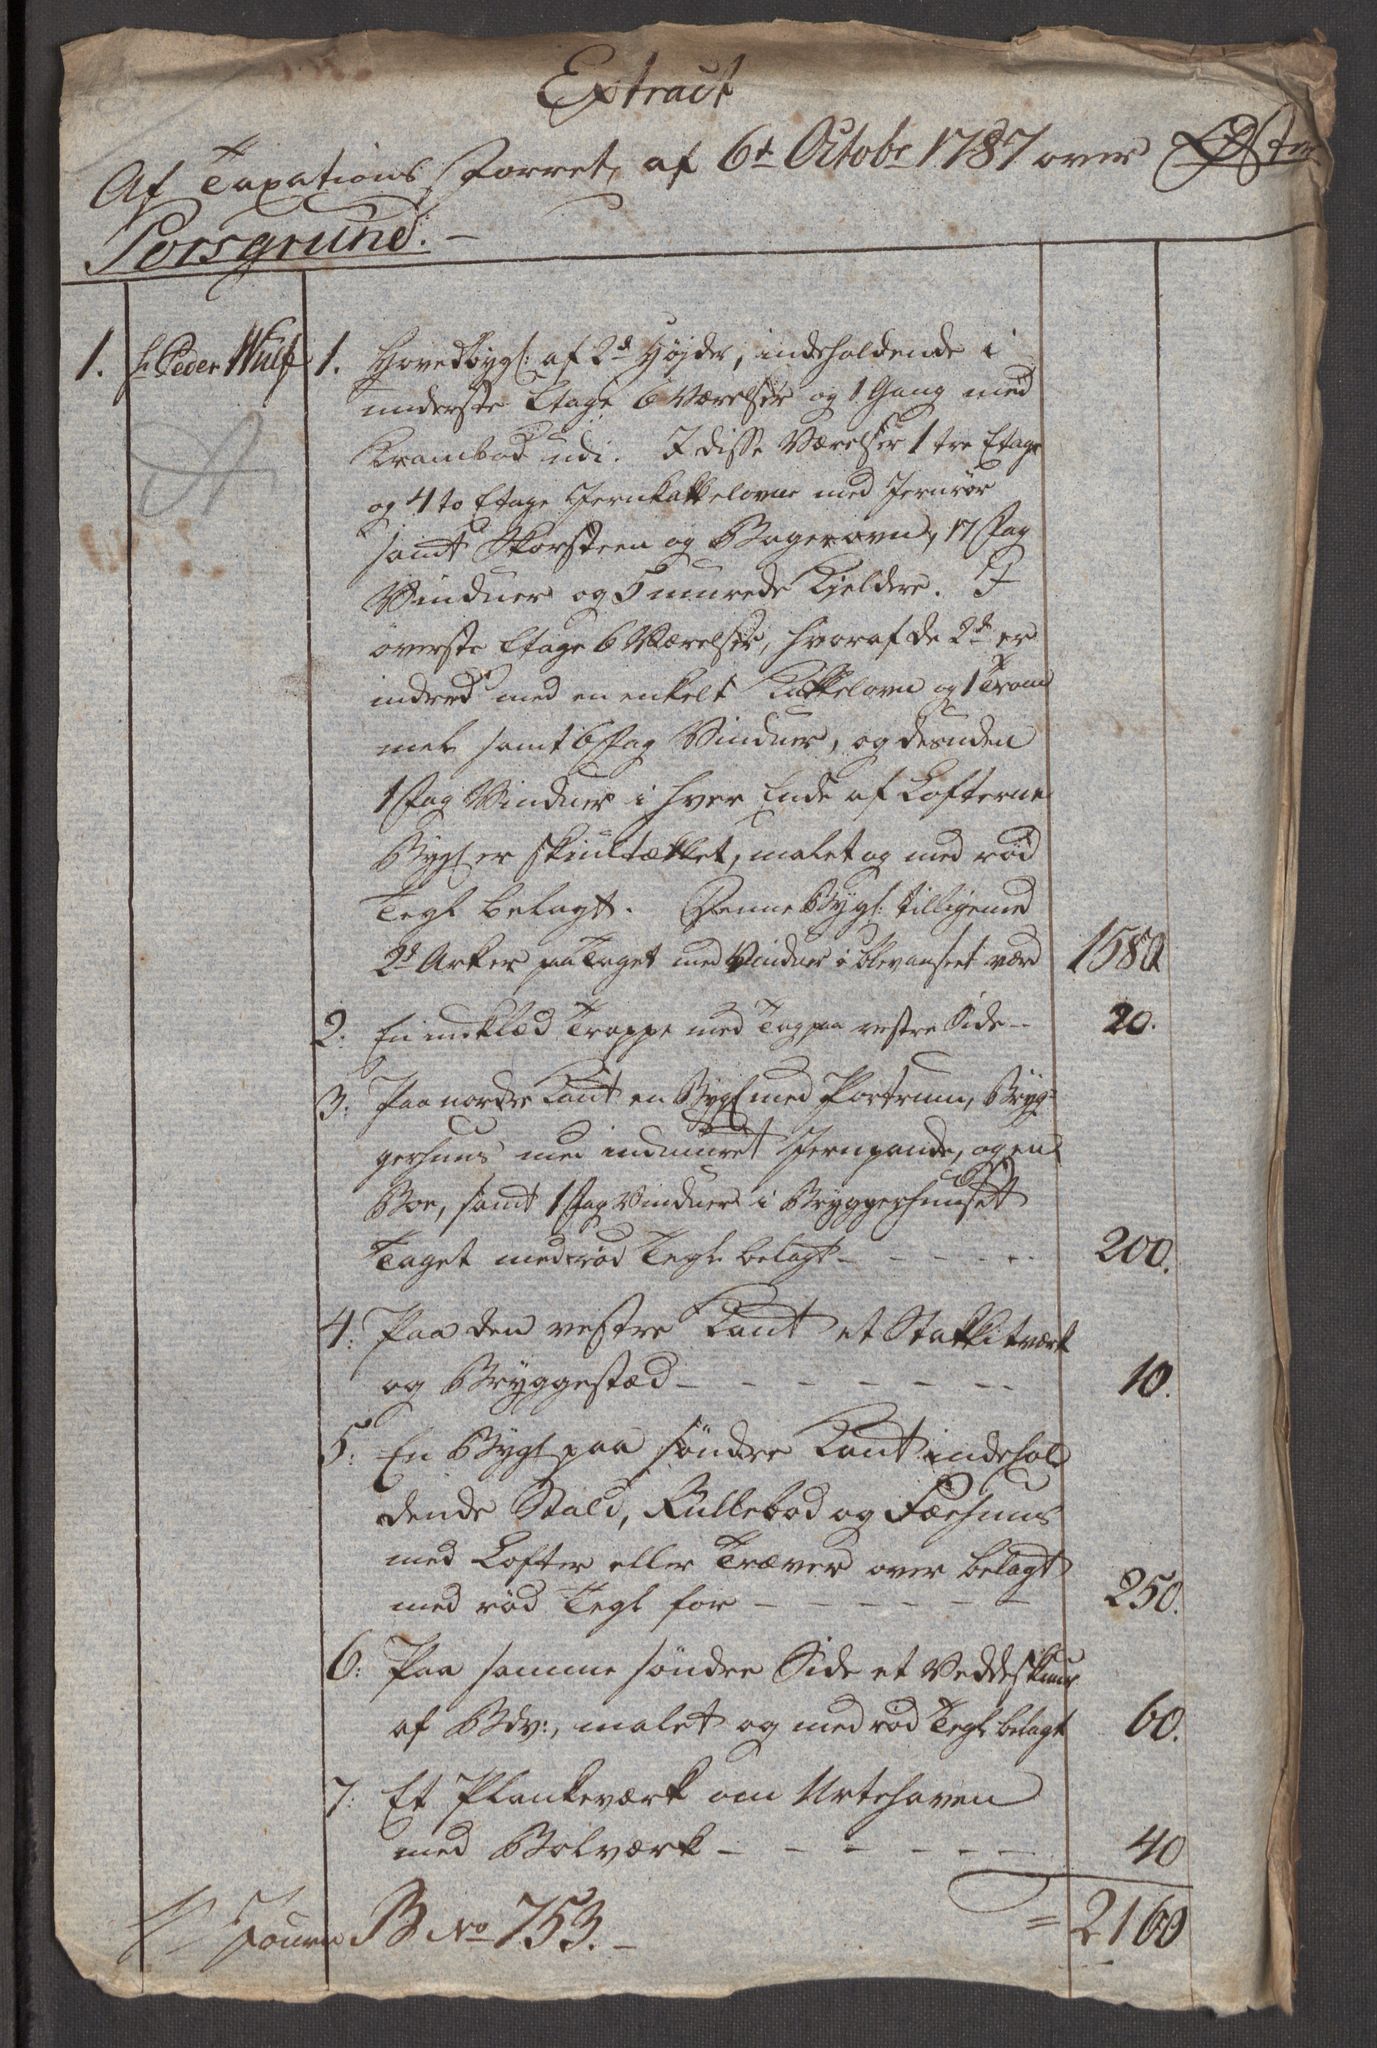 Extract
Af Taxations Forret, af 6t Octobr 1787 over Øster
Porsgrund. -
1. hr Peder Wulf 1. Hovedbygn: af 2de Høyder, indeholdende i
underste Etage 6 Værelser og 1 Gang med
Krambod udi. I disse Værelser 1 tre Etage
og 4 to Etage Jernkakkelovne med Jernrør
samt Skorsteen og Bagerovn, 17 Fag
Vinduer og 5 murede Kjeldere. I
øverste Etage 6 Værelser, hvoraf de 2de er
indred med en enkelt Kakkelovn og 1 Trom
mel samt 6 Fag Vinduer, og desuden
1 Fag Vinduer i hver Ende af Lofterne
Bygn er skiultækket, malet og med rød
Tegl belagt. Denne Bygn: tilligemed
2de Arker paa Taget med Vinduer i blev anseet værd 1580
2: En indklæd Trappe med Tag paa vestre Side - 20.
3: Paa nordre Kant en Bygn med Portrum, Bryg-
gerhuus med indmuret Jernpande, og en
Boe, samt 1 Fag Vinduer i Bryggerhuuset
Taget med rød Tegl belagt - - - - - 200.
4: Paa den vestre Kant et Stakkitværk
og Bryggestæd - - - - - - - 10.
5: En Bygn paa søndre Kant indehol
dende Stald, Rullebod og Fæehuus
med Lofter eller Træver over belagt
med rød Tegl for - - - - - - 250.
6: Paa samme søndre Side et Veddeskuur
af Bdv:, malet og med rød Tegl belagt 60.
7: Et Plankeværk om Urtehaven
med Bolværk - - - - - - - 40
B No 753. - = 2160